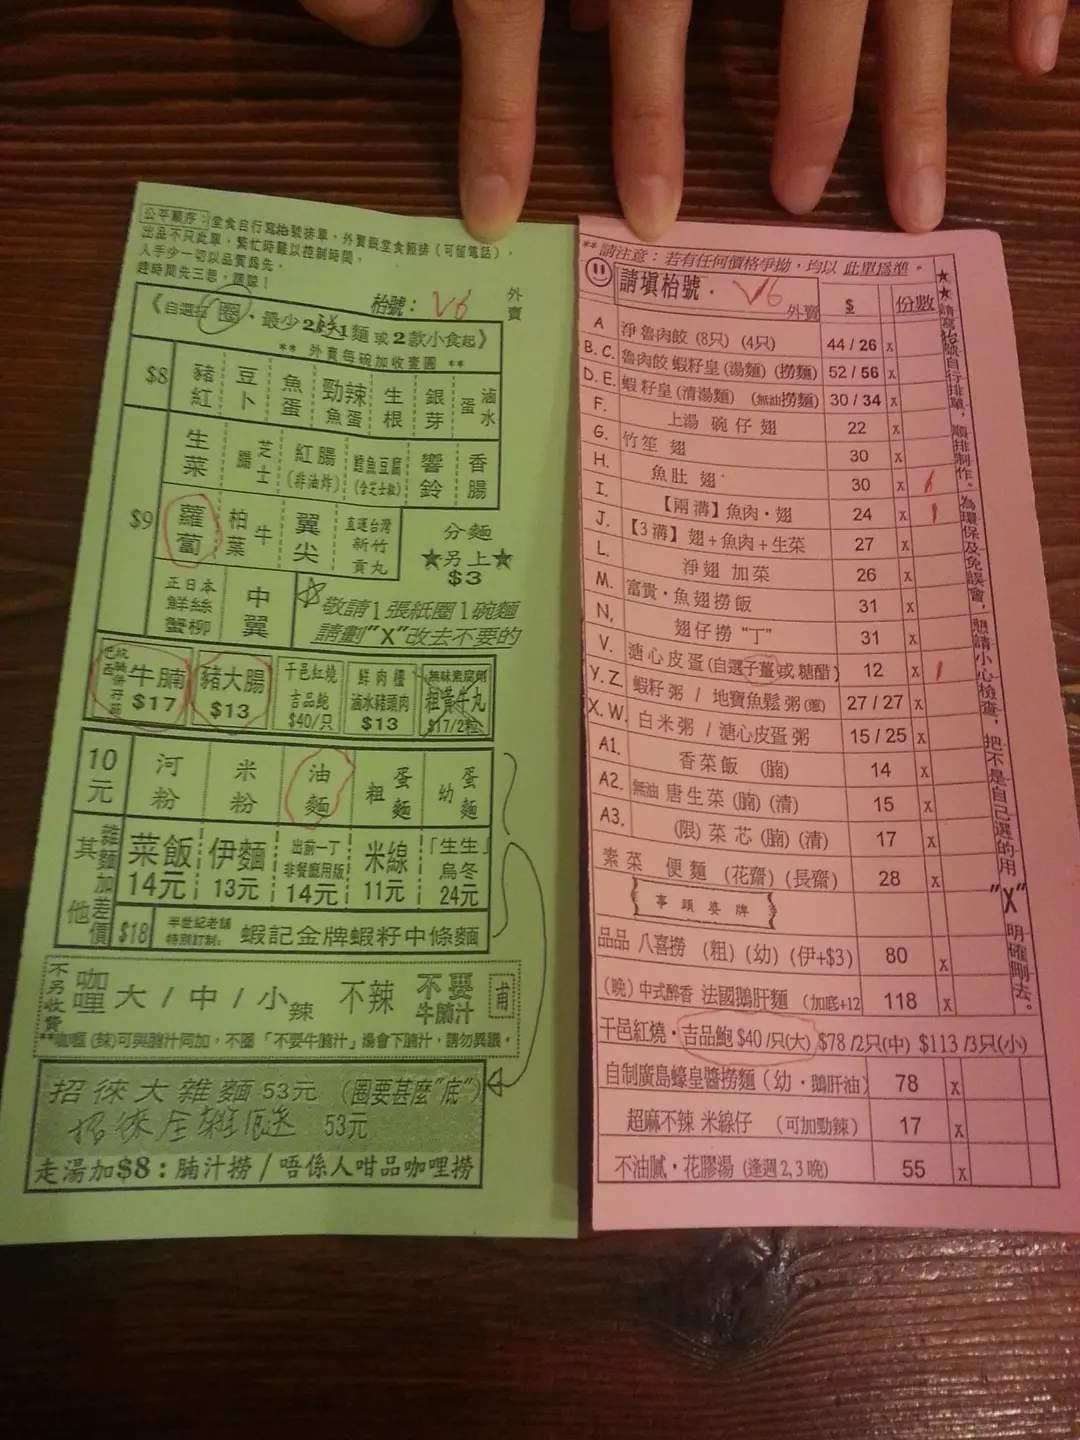 公平順序：堂食自行寫枱號排單，外賣跟堂食照排（可留電話），
出品不只此單，繁忙時難以控制時間，
人手少一切以品質為先，
趕時間先三思，請諒！
枱號： V6 外賣
《自選打圈，最少2送1麵或2款小食起》
** 外賣每碗加收壹圓 **
$8 豬紅 豆卜 魚蛋 勁辣魚蛋 生根 銀芽 滷水蛋
$9 生菜 芝士腸 紅腸（非油炸） 鱈魚豆腐（含芝士粒） 響鈴 香腸
蘿蔔 牛柏葉 翼尖 直運台灣新竹貢丸 分麵
★另上★
$3
正日本鮮絲蟹柳 中翼
敬請1張紙圈1碗麵
請劃"X"改去不要的
牛腩 $17 豬大腸 $13 千邑紅燒吉品鮑 $40/只 鮮肉檔滷水豬頭肉 $13 無味素腐劑粗黃牛丸 $17/2粒
10元 河粉 米粉 油麵 粗蛋麵 幼蛋麵
其他 雜麵加差價 菜飯 14元 伊麵 13元 出前一丁 非餐廳用版 14元 米線 11元 「生生」烏冬 24元
$18 半世紀老舖特別訂制： 蝦記金牌蝦籽中條麵
不另收費 咖喱 大/中/小辣 不辣 不要牛腩汁 走甫
**咖喱(辣)可與腩汁同加，不圈「不要牛腩汁」湯會下腩汁，請勿異議。
招徠大雜麵 53元（圈要甚麼"底"）
招徠全雜 53元
走湯加$8：腩汁撈/唔係人咁品咖哩撈
** 請注意：若有任何價格爭拗，均以 此單為準。
請填枱號． V6 外賣 $ 份數
A 淨 魯肉餃 (8只) (4只) 44 / 26 x
B. C. 魯肉餃 蝦籽皇 (湯麵) (撈麵) 52 / 56 x
D. E. 蝦 籽皇 (清湯麵) (無油撈麵) 30 / 34 x
F. 上湯 碗 仔 翅 22 x
G. 竹笙 翅 30 x
H. 魚肚 翅 30 x
I. 【兩溝】魚肉・翅 24 x 1
J. 【3溝】翅＋魚肉＋生菜 27 x
L. 淨翅 加菜 26 x
M. 富貴・魚翅撈飯 31 x
N, 翅仔撈 "丁" 31 x
V. 溏心皮蛋 (自選子薑或糖醋) 12 x 1
Y. Z. 蝦籽 粥 / 地寶魚鬆 粥 (蔥) 27 / 27 x
X. W. 白米粥 / 溏心皮蛋 粥 15 / 25 x
A1. 香菜飯 (腩) 14 x
A2. 無油 唐生菜 (腩) (清) 15 x
A3. (限) 菜 芯 (腩) (清) 17 x
素菜 便麵 (花齋) (長齋) 28 x
事頭婆牌
品品 八喜撈 (粗) (幼) (伊+$3) 80 x
(晚) 中式醉香 法國鵝肝麵 (加底+12 118 x
千邑紅燒・吉品鮑 $40/只(大) $78 /2只(中) $113 /3只(小)
自制廣島蠔皇醬撈麵 (幼・鵝肝油) 78 x
超麻不辣 米線仔 (可加勁辣) 17 x
不油膩・花膠湯 (逢週2, 3晚) 55 x
★★請寫枱號自行排單，順排制作。為環保及免誤會，懇請小心檢查，把不是自己選的用"X"明確刪去。